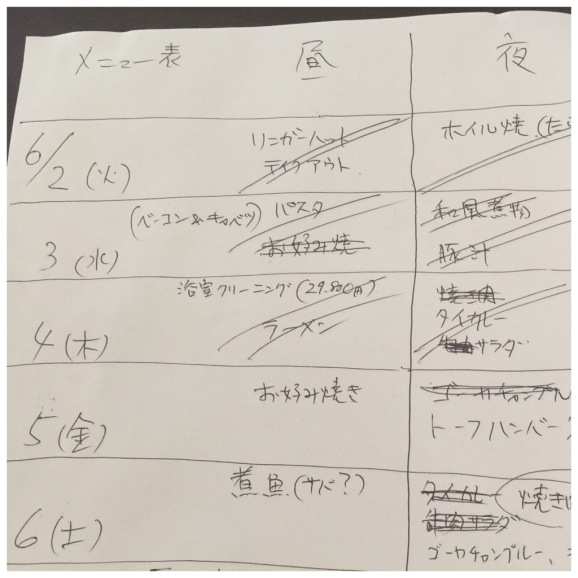 メニュー表 昼 夜
6/2 (火)
リンガーハット
テイクアウト
ホイル焼 (たら
3 (水)
(ベーコン&キャベツ) パスタ
お好み焼
和風煮物
豚汁
4 (木)
浴室クリーニング (29.800円)
ラーメン
焼き肉
タイカレー
サラダ
5 (金)
お好み焼き
ゴーヤチャンプル
トーフハンバー
6 (土)
煮魚 (サバ?)
タイカレー
焼き
牛肉サラダ
ゴーヤチャンプルー、